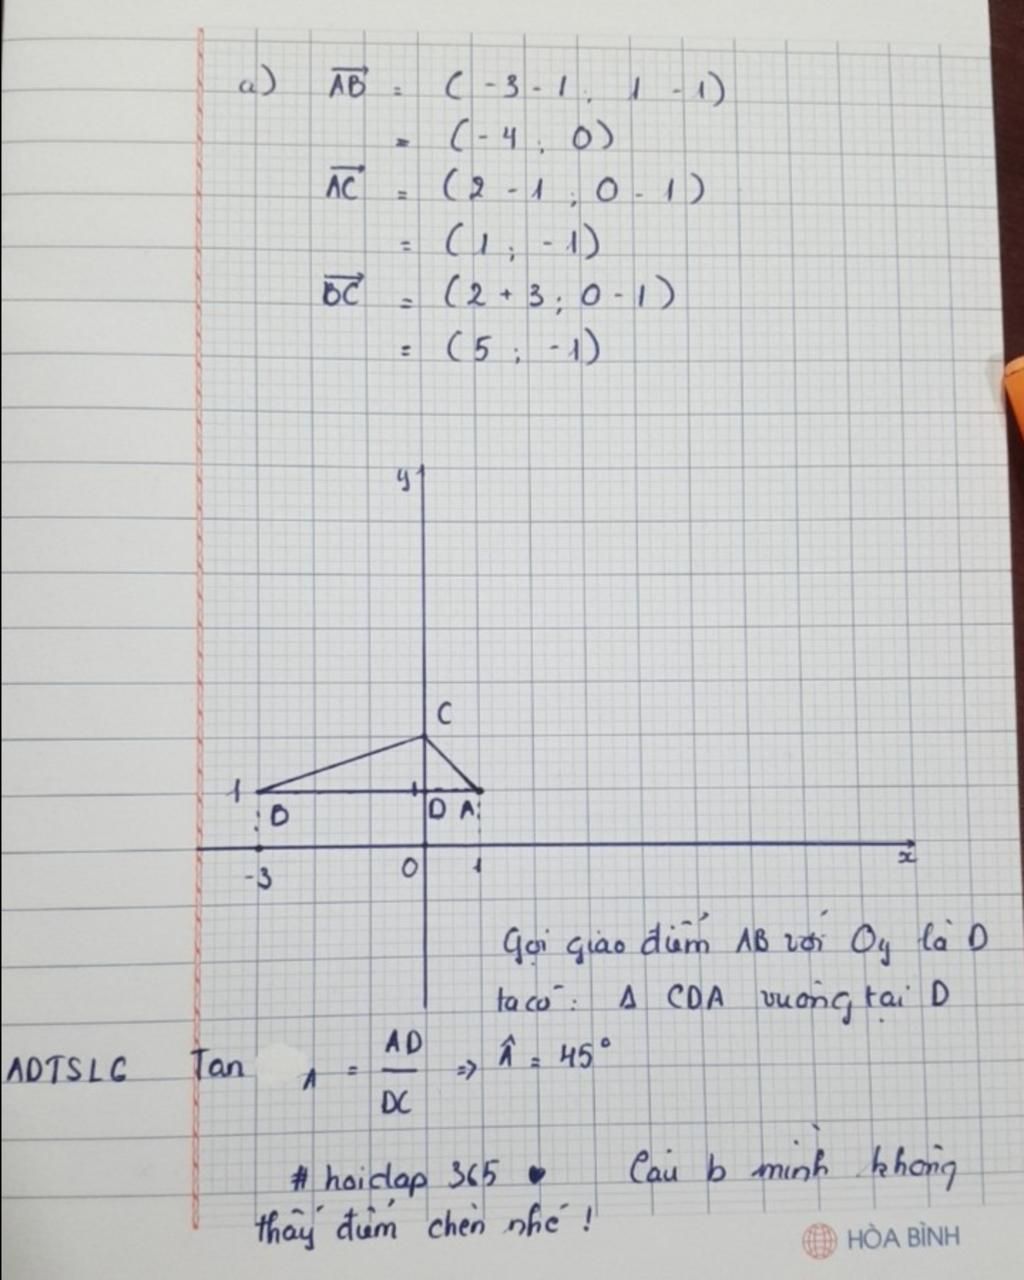 a) AB = (-3-1; 1-1)
= (-4; 0)
AC = (2-1; 0-1)
= (1; -1)
BC = (2+3; 0-1)
= (5; -1)
y
C
1
B
D A
-3
0
1
x
Gọi giao điểm AB với Oy là D
ta có: Δ CDA vuông tại D
ADTSLG Tan A = AD/DC => Â = 45°
# hoidap 365 Câu b mình không
thấy điểm chèn nhé!
HÒA BÌNH